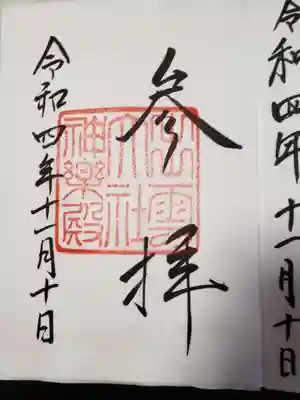 令和四年十一月十日
参拝
出雲
大社
神樂殿
令和四年十一月十日